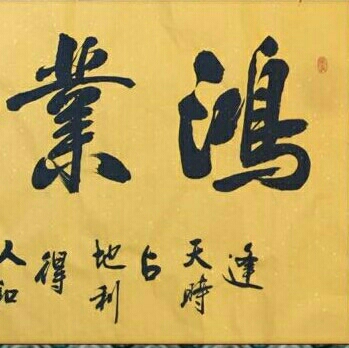 鴻業
逢天時占地利得人和